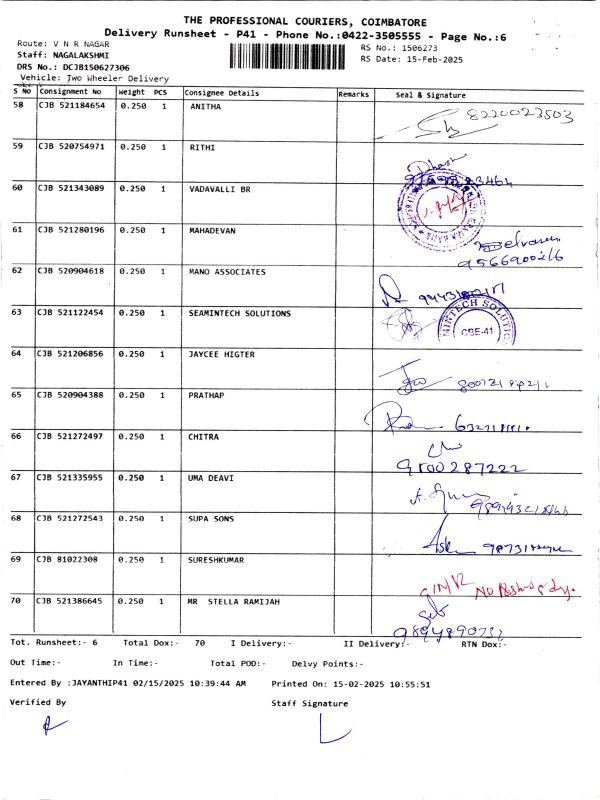 THE PROFESSIONAL COURIERS, COIMBATORE
Delivery Runsheet - P41 - Phone No.:0422-3505555 - Page No.:6
Route: V N R NAGAR
RS No.: 1506273
Staff: NAGALAKSHMI
RS Date: 15-Feb-2025
DRS No.: DCJB150627306
Vehicle: Two Wheeler Delivery
S No Consignment No Weight PCS Consignee Details Remarks Seal & Signature
58 CJB 521184654 0.250 1 ANITHA 8220023503
59 CJB 520754971 0.250 1 RITHI
60 CJB 521343089 0.250 1 VADAVALLI BR
61 CJB 521280196 0.250 1 MAHADEVAN
9566900216
62 CJB 520904618 0.250 1 MANO ASSOCIATES
63 CJB 521122454 0.250 1 SEAMINTECH SOLUTIONS
CBE-41
64 CJB 521206856 0.250 1 JAYCEE HIGTER
65 CJB 520904388 0.250 1 PRATHAP
66 CJB 521272497 0.250 1 CHITRA
9100287222
67 CJB 521335955 0.250 1 UMA DEAVI
68 CJB 521272543 0.250 1 SUPA SONS
69 CJB 81022308 0.250 1 SURESHKUMAR
70 CJB 521386645 0.250 1 MR STELLA RAMIJAH
Tot. Runsheet:- 6 Total Dox:- 70 I Delivery:- II Delivery:- RTN Dox:-
Out Time:- In Time:- Total POD:- Delvy Points:-
Entered By :JAYANTHIP41 02/15/2025 10:39:44 AM Printed On: 15-02-2025 10:55:51
Verified By Staff Signature